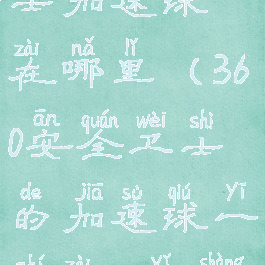 士加速球
zài nǎ lǐ
在哪里(36
ān quán wèi shì
0安全卫士
de jiā sù qiú Yī
的加速球一